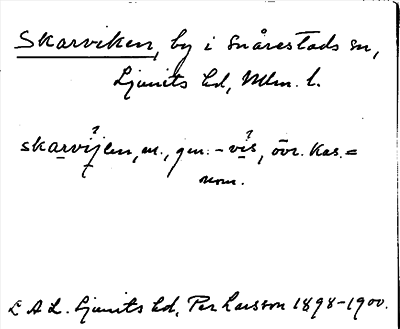 Skarviken, by i Snårestads sn,
Ljunits hd, Mlm. l.
skarvijen, m., gen. -vis, övr. kas. =
nom.
L A L. Ljunits hd, Per Larsson 1898-1900.